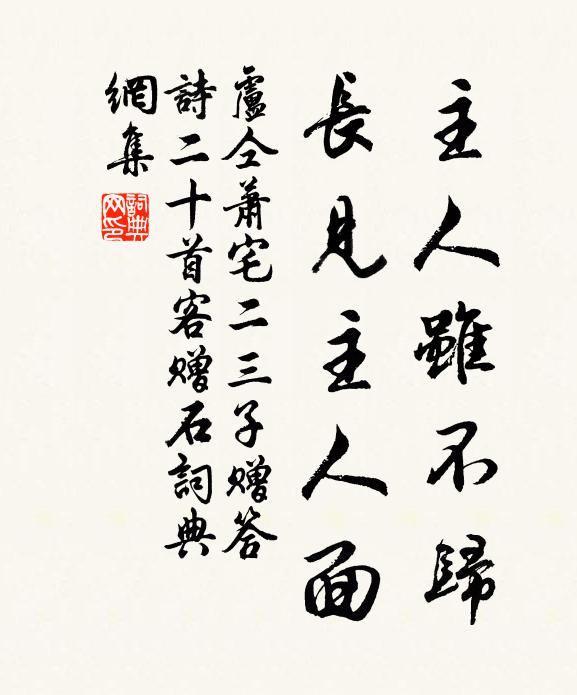 主人雖不歸
長見主人面
盧仝蕭宅二三子贈答
詩二十首客贈石詞典
網集
詞典网印